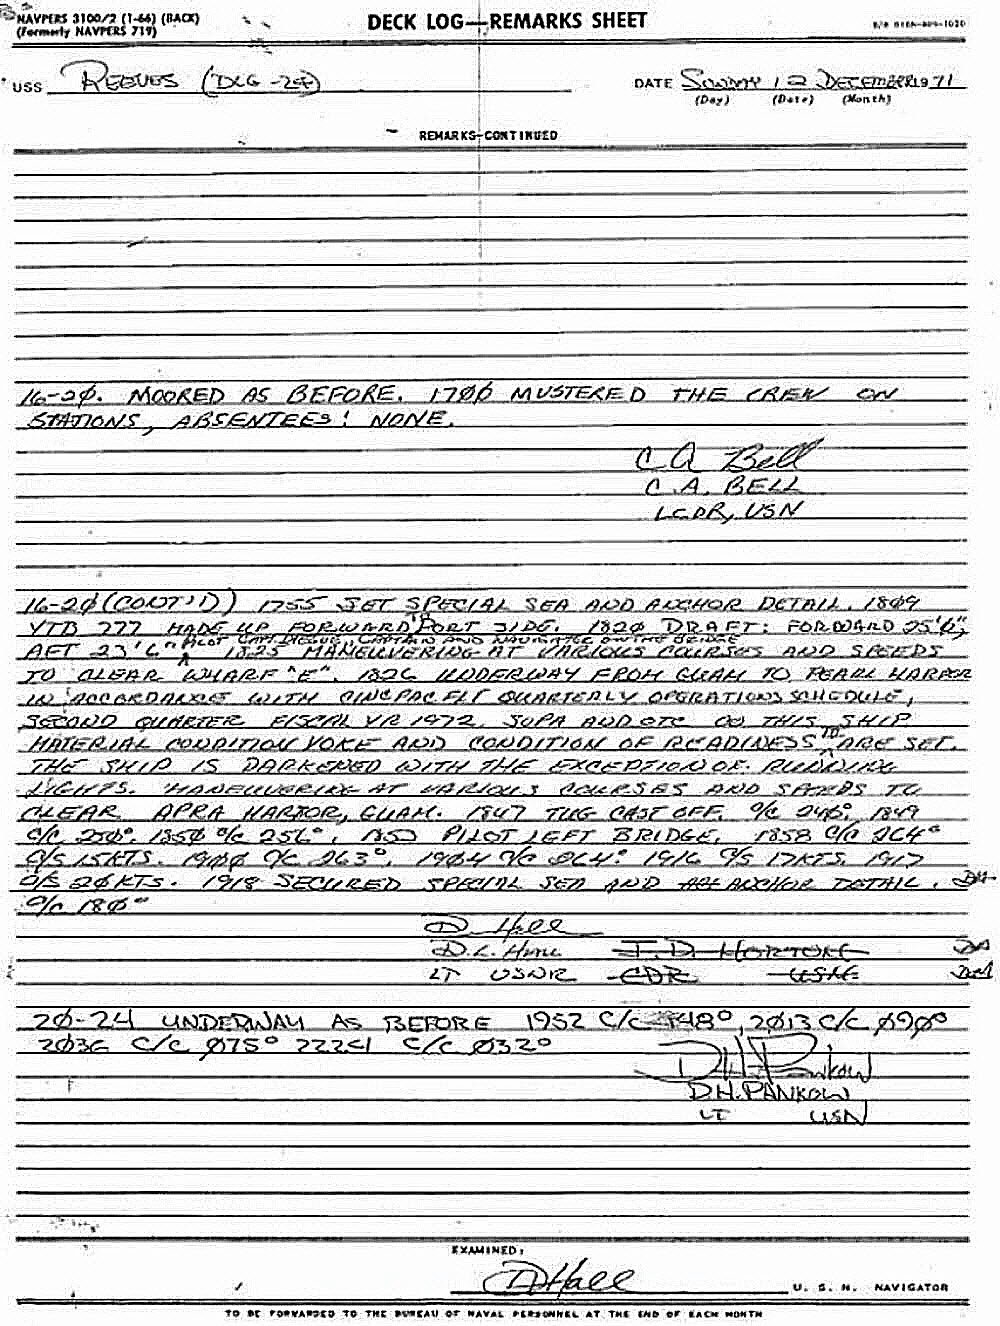 NAVPERS 3100/2 (1-66) (BACK)
(Formerly NAVPERS 719)
DECK LOG—REMARKS SHEET
USS REEVES (DLG-24)
DATE SUNDAY 12 DECEMBER 1971
(Day) (Date) (Month)
REMARKS-CONTINUED
16-2Ø. MOORED AS BEFORE. 17ØØ MUSTERED THE CREW ON
STATIONS, ABSENTEES: NONE.
C A Bell
C.A. BELL
LCDR, USN
16-2Ø (CONT'D) 1755 SET SPECIAL SEA AND ANCHOR DETAIL. 18Ø9
YTB 777 MADE UP FORWARD TO PORT SIDE. 182Ø DRAFT: FORWARD 25'6",
AFT 23'6" PILOT CAPT CAPTAIN AND NAVIGATOR ON THE BRIDGE 1825 MANEUVERING AT VARIOUS COURSES AND SPEEDS
TO CLEAR WHARF "E". 1826 UNDERWAY FROM GUAM TO PEARL HARBOR
IN ACCORDANCE WITH CINCPACFLT QUARTERLY OPERATIONS SCHEDULE,
SECOND QUARTER FISCAL YR 1972. SOPA AND OTC ON THIS SHIP
MATERIAL CONDITION YOKE AND CONDITION OF READINESS IV ARE SET.
THE SHIP IS DARKENED WITH THE EXCEPTION OF RUNNING
LIGHTS. MANEUVERING AT VARIOUS COURSES AND SPEEDS TO
CLEAR APRA HARBOR, GUAM. 1847 TUG CAST OFF. C/C 246°. 1849
C/C 25Ø°. 185Ø C/C 256°. 1853 PILOT LEFT BRIDGE. 1858 C/C 264°
C/S 15KTS. 19ØØ C/C 263°. 19Ø4 C/C 264° 1916 C/S 17KTS. 1917
C/S 2ØKTS. 1918 SECURED SPECIAL SEA AND ANCHOR DETAIL.
C/C 18Ø°
D. Hall
D.L. HALL J.D. HORTON
LT USNR CDR
2Ø-24 UNDERWAY AS BEFORE 1952 C/C 148°, 2Ø13 C/C Ø9Ø°
2Ø36 C/C Ø75° 2224 C/C Ø32°
D.H. Pankow
D.H. PANKOW
LT USN
EXAMINED:
D Hall
U. S. N. NAVIGATOR
TO BE FORWARDED TO THE BUREAU OF NAVAL PERSONNEL AT THE END OF EACH MONTH